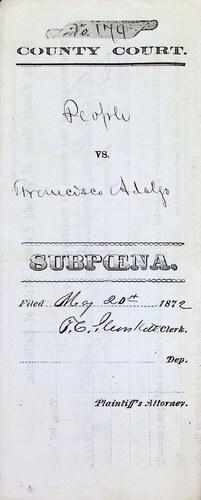 No. 174
COUNTY COURT.
People
VS.
Francisco Adalgo
SUBPŒNA.
Filed May 20th 1872
Clerk.
Dep.
Plaintiff's Attorney.